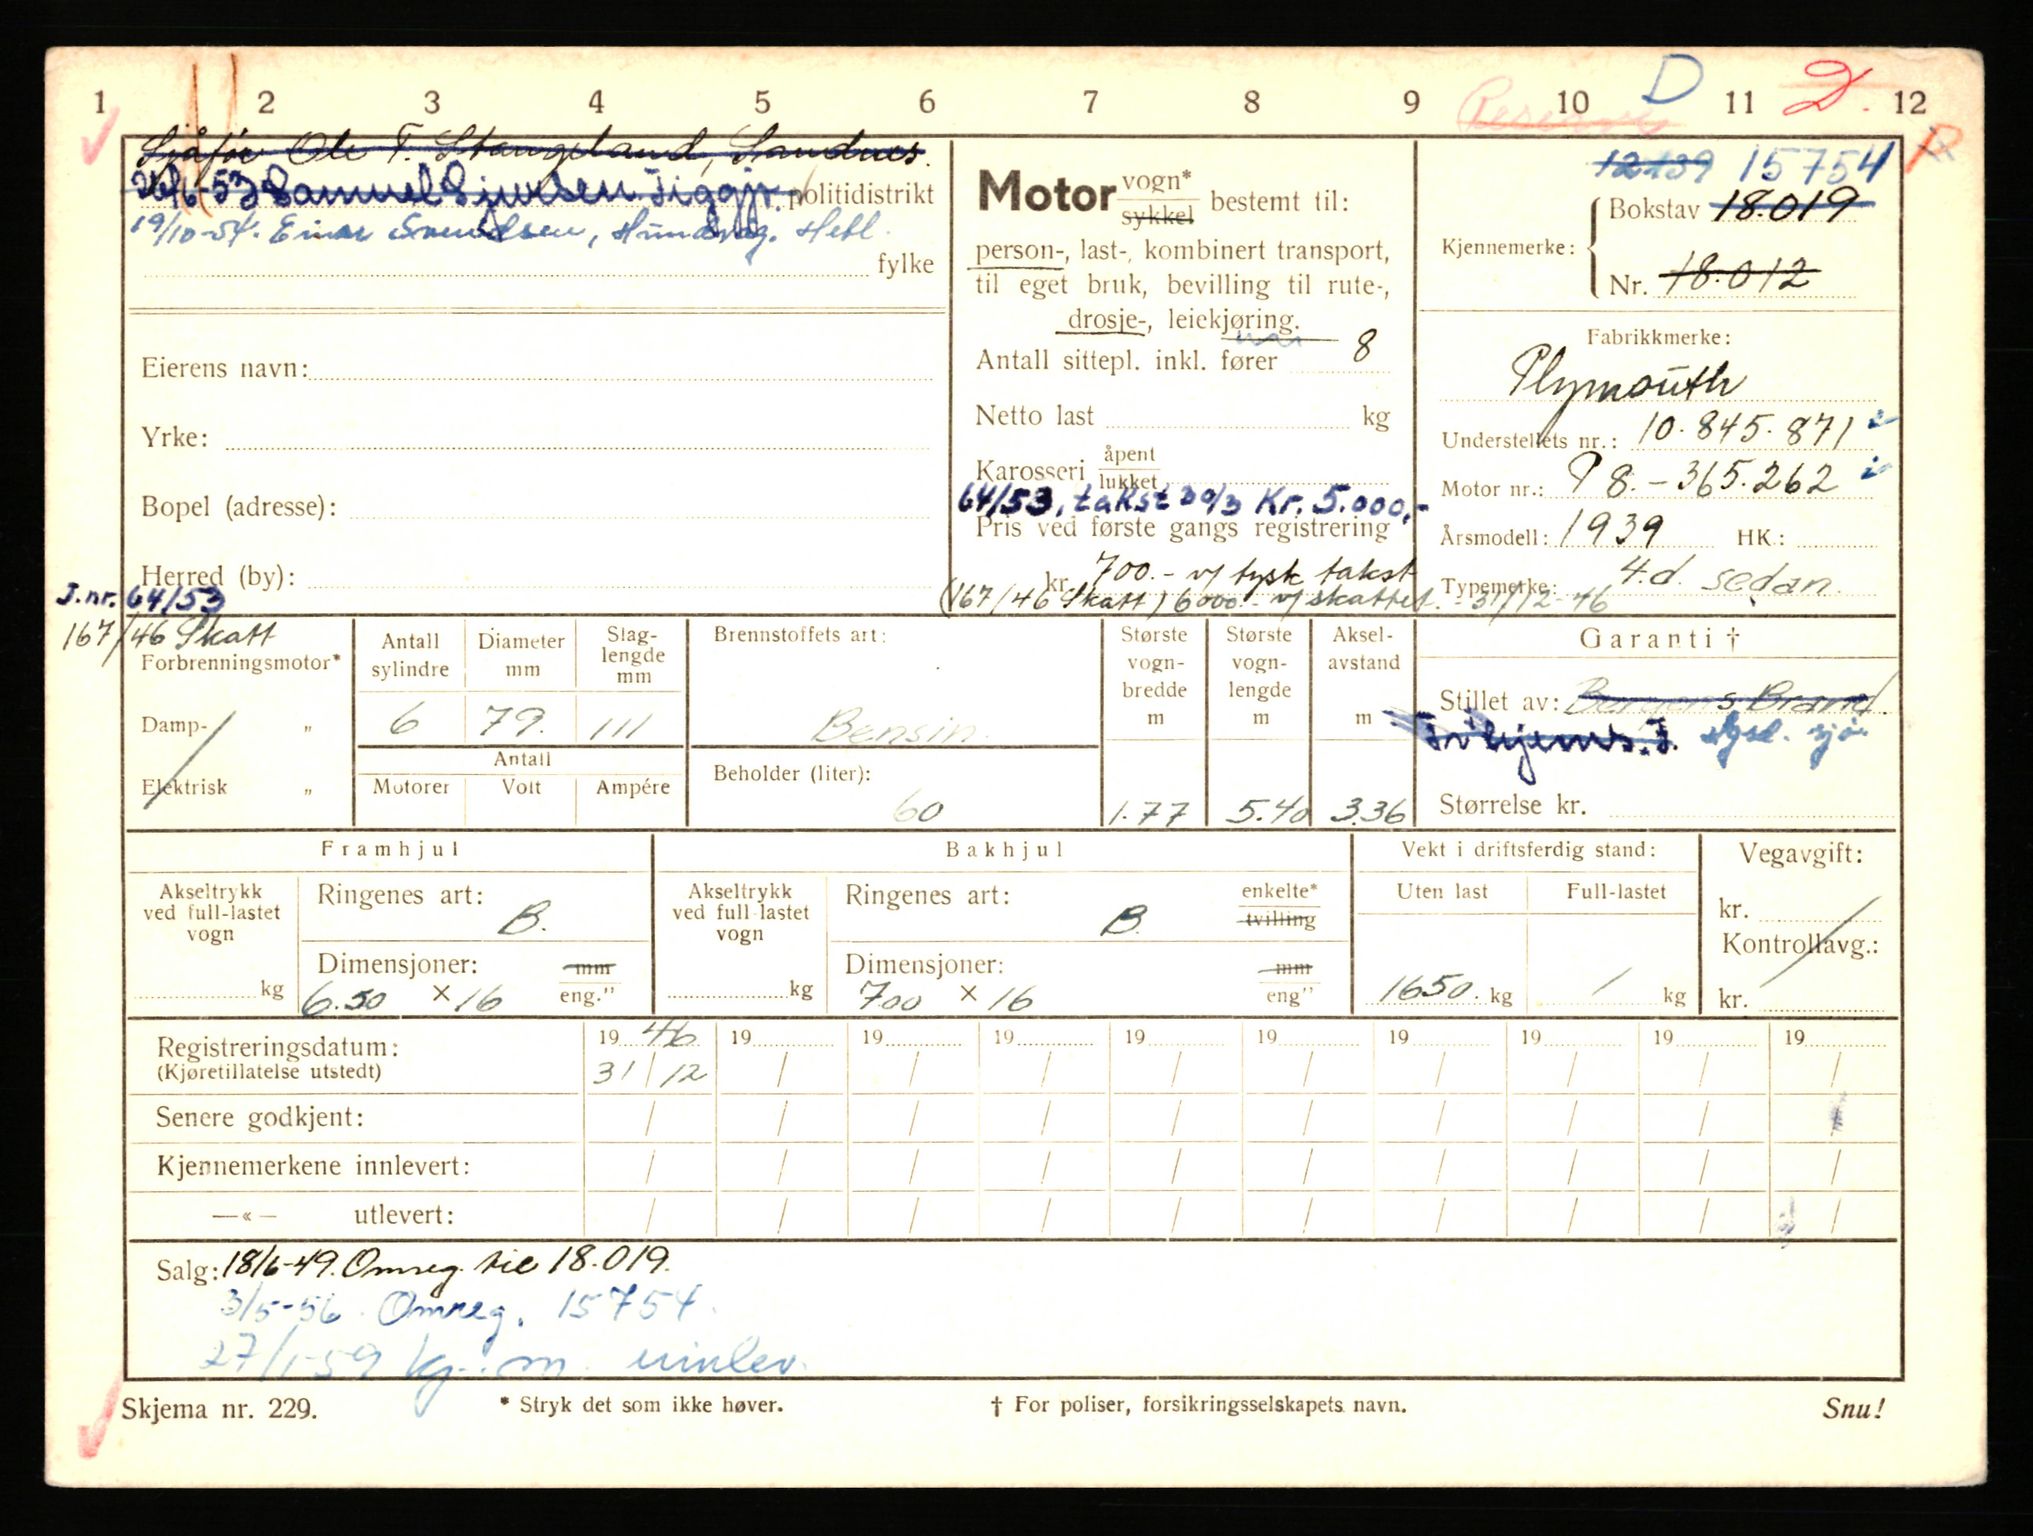 1 2 3 4 5 6 7 8 9 10 11 12
Reserve D D.
Sjåfør Ole T. Stangeland, Sandnes.
26/6-53 Samuel Sivertsen Figgjo. politidistrikt
19/10-54. Einar Svendsen, Hundvåg. Hetl.
fylke
Eierens navn:
Yrke:
Bopel (adresse):
Herred (by):
J.nr. 64/53
167/46 Skatt
Motor vogn* sykkel bestemt til:
person-, last-, kombinert transport,
til eget bruk, bevilling til rute-,
drosje-, leiekjøring.
Antall sittepl. inkl. fører 8
Netto last kg
Karosseri åpent lukket
64/53, takst 30/3 Kr. 5.000,-
Pris ved første gangs registrering
kr. 700.- v/ tysk takst
(167/46 Skatt) 6000.- v/ skattet. - 31/12-46
12139 15754
Kjennemerke: Bokstav 18.019
Nr. 18.012
Fabrikkmerke:
Plymouth
Understellets nr.: 10.845.871
Motor nr.: P 8.-365.262
Årsmodell: 1939 HK.:
Typemerke: 4.d. sedan.
Garanti †
Stillet av: Bergens Brand.
Størrelse kr.
Forbrenningsmotor*
Damp- „
Elektrisk „
Antall sylindre Diameter mm Slag-lengde mm
6 79. 111
Antall
Motorer Volt Ampére
Brennstoffets art:
Bensin.
Beholder (liter):
60
Største vogn-bredde m Største vogn-lengde m Aksel-avstand m
1.77 5.40 3.36
Framhjul Bakhjul Vekt i driftsferdig stand: Vegavgift:
Akseltrykk ved full-lastet vogn kg
Ringenes art: B.
Dimensjoner: mm
6.50 × 16 eng."
Akseltrykk ved full lastet vogn kg
Ringenes art: B. enkelte* tvilling
Dimensjoner: mm
700 × 16 eng"
Uten last Full-lastet
1650. kg kg
kr.
Kontrollavg.:
kr.
Registreringsdatum: 19 46 19 19 19 19 19 19 19 19 19
(Kjøretillatelse utstedt) 31/12 / / / / / / / / /
Senere godkjent: / / / / / / / / / /
Kjennemerkene innlevert: / / / / / / / / / /
—«— utlevert: / / / / / / / / / /
Salg: 18/6-49. Omreg. til 18.019.
3/5-56. Omreg. 15754.
27/1-59 kj. m. innlev.
Skjema nr. 229. * Stryk det som ikke høver. † For poliser, forsikringsselskapets navn. Snu!